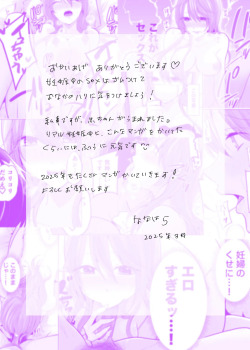 おかいあげ ありがとうございます♡
妊娠中のSexはゴムつけて
おなかのハリに気をつけましょう!
私事ですが、赤ちゃんがうまれました。
リアル妊娠中に、こんなマンガをかいてた
くらいには、ふつうに元気です
2025年もたくさんマンガかいていきます!
よろしくお願いします
2025年
コリコリ
このまま
妊婦の
くせに…!
エロ
すぎるッ…!